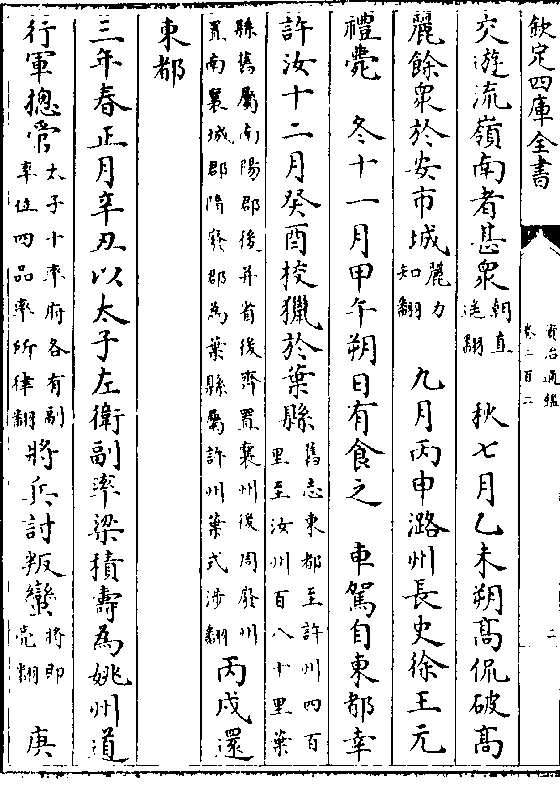 欽定四庫全書
資治通鑑
卷二百二
二
交遊流嶺南者甚衆朝直遥翻 秋七月乙未朔高侃破高
麗餘衆於安市城麗力知翻 九月丙申潞州長史徐王元
禮薨 冬十一月甲午朔日有食之 車駕自東都幸
許汝十二月癸酉校獵於葉縣舊志東都至許州四百里至汝州百八十里葉
縣舊屬南陽郡後并省後齊置襄州後周廢州置南襄城郡隋廢郡為葉縣屬許州葉式涉翻丙戌還
東都
三年春正月辛丑以太子左衛副率梁積壽為姚州道
行軍摠管太子十率府各有副率位四品率所律翻將兵討叛蠻將即亮翻 庚